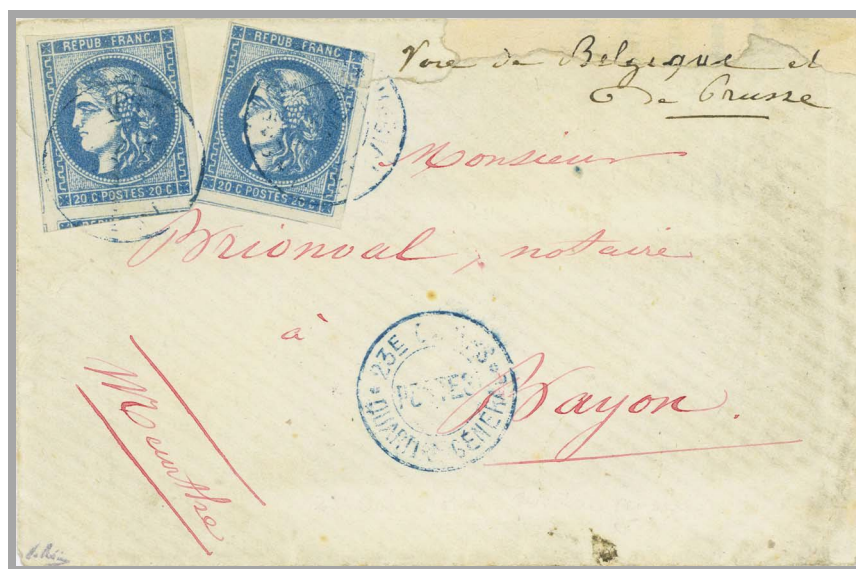 REPUB FRANC
20 C POSTES 20 C
REPUB FRANC
20 C POSTES 20 C
Voie de Belgique et
de Prusse
Monsieur
Brionval, notaire
à
Bayon.
Meurthe
23E CORPS
POSTES
QUARTIER GÉNÉRAL